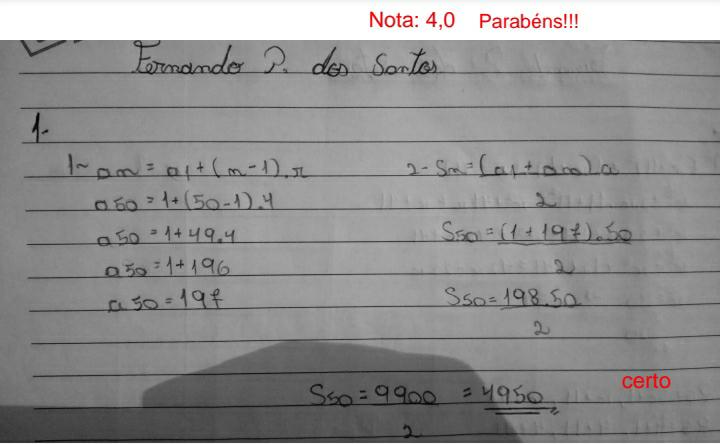 Nota: 4,0 Parabéns!!!
Fernando P. dos Santos
1-
1~ an = a1+(n-1).r
a50 = 1+(50-1).4
a50 = 1+49.4
a50 = 1+196
a50 = 197
2- Sn = (a1+an)n
2
S50 = (1+197).50
2
S50 = 198.50
2
certo
S50 = 9900 = 4950
2